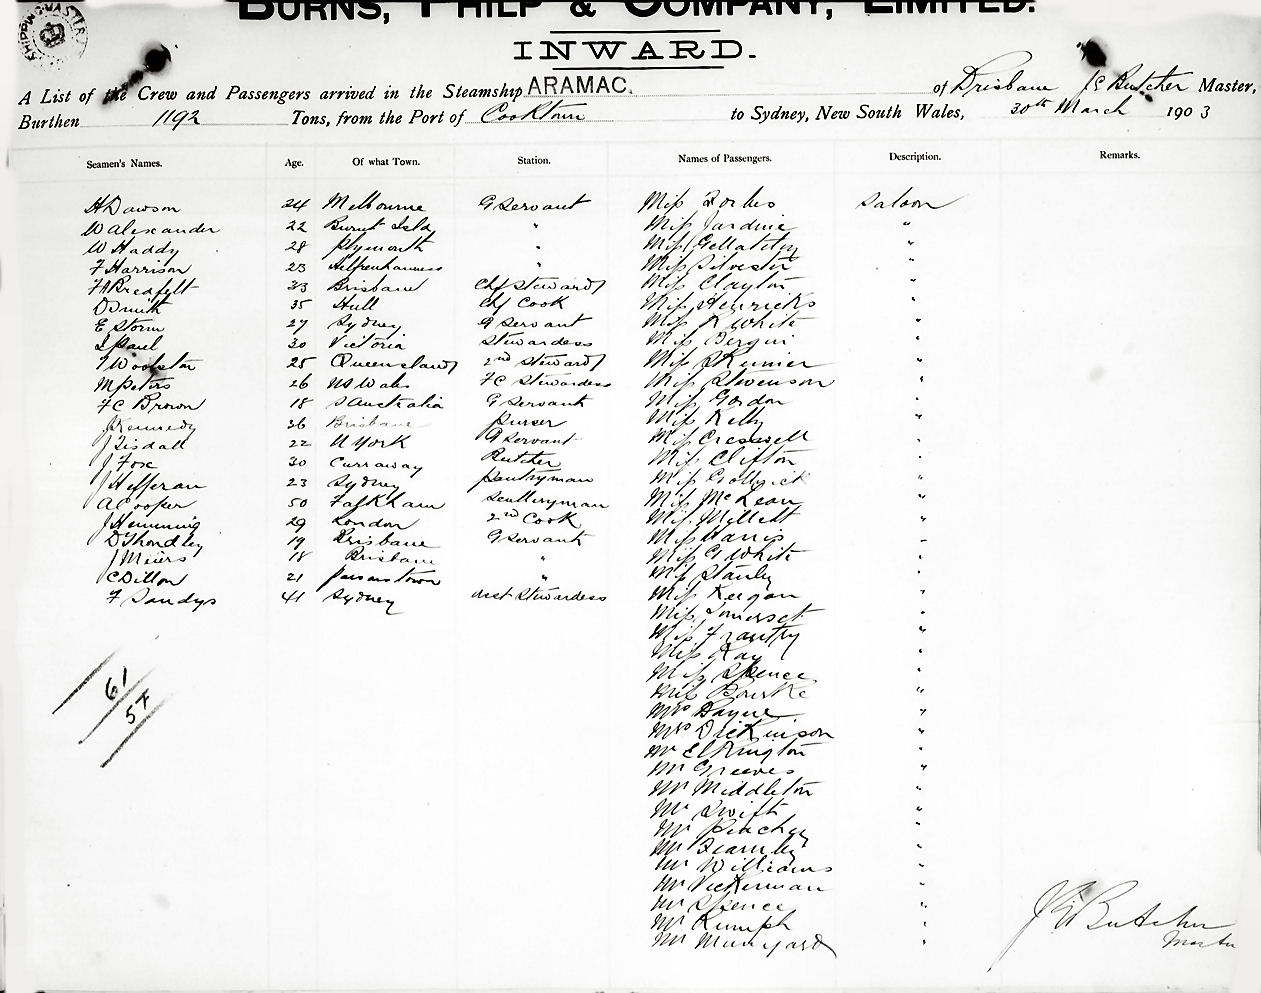 BURNS, PHILP & COMPANY, LIMITED.
SHIPPING MASTER
INWARD.
A List of the Crew and Passengers arrived in the Steamship ARAMAC. of Brisbane J E Butcher Master,
Burthen 1192 Tons, from the Port of Cooktown to Sydney, New South Wales, 30th March 1903
Seamen's Names. Age. Of what Town. Station. Names of Passengers. Description. Remarks.
H Dawson 24 Melbourne G Servant Miss Forbes Saloon
W Alexander 22 Burnt Isld " Miss Jardine "
W Haddy 28 Plymouth " Miss Gellatly "
F Harrison 23 " Miss Silvester "
33 Brisbane Chf Steward Miss Clayton "
D Smith 35 Hull Chf Cook Miss Henricks "
E Storm 27 Sydney G Servant Miss R White "
S Paul 30 Victoria Stewardess Miss "
25 Queensland 2nd Steward Miss Skinner "
M Peters 26 N S Wales F C Stewardess Miss Stevenson "
F C Brown 18 S Australia G Servant Miss Gordon "
J Kennedy 36 Brisbane Purser Miss Kelly "
J Tisdall 22 N York G Servant Miss Cresswell "
J Fox 30 Curraway Butcher Miss Clifton "
J Hefferan 23 Sydney Pantryman Miss "
A Cooper 50 Falkham Sculleryman Miss McLean "
J Hemming 29 London 2nd Cook Miss Millett "
19 Brisbane G Servant Miss Harris "
J Meiers 18 Brisbane " Miss G White "
C Dillon 21 Parsonstown " Miss Stanley "
F Sandys 41 Sydney Asst Stewardess Miss Keegan "
Miss Somerset "
Miss "
Miss Kay "
Miss Spence "
Miss Bourke "
Mrs Bayne "
Mrs Dickinson "
Mr Elkington "
Mr Greeves "
Mr Middleton "
Mr Swift "
Mr "
Mr Fearnley "
Mr Williams "
Mr Vickerman "
Mr Spence "
Mr Rumph "
Mr Munyard "
61
57
J E Butcher
Master